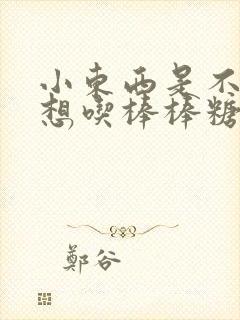 小東西是不
想喫棒棒糖
鄭谷